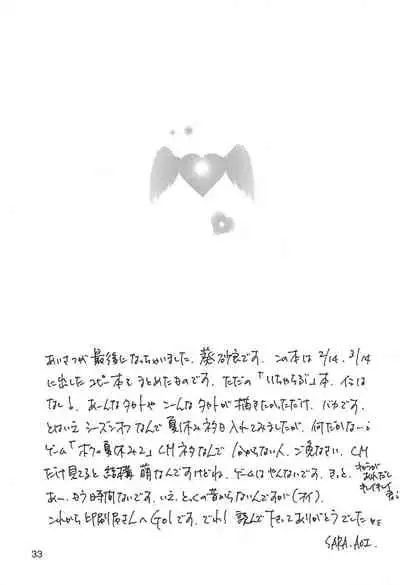 あいさつが最後になっちゃいました、葵砂良です。この本は2/14、3/14
に出したコピー本をまとめたものです。ただの「いちゃらぶ」本。イミは
なし！あーんなタカトやこーんなタカトが描きたかっただけ。バカです。
とはいえシーズンオフなんで夏休みネタ日入れてみましたが、何だかなー。
ゲーム「ボクの夏休み2」CMネタなんで分からない人、ご免なさい。CM
だけ見てると結構萌なんですけどね。ゲームはやんないです。きっと、
あー、もう時間ないです。いえ、とっくの昔からないんですが（オイ）
これから印刷屋さんへGO!です。でわ！読んで下さってありがとうでした
SARA.AOI.
33